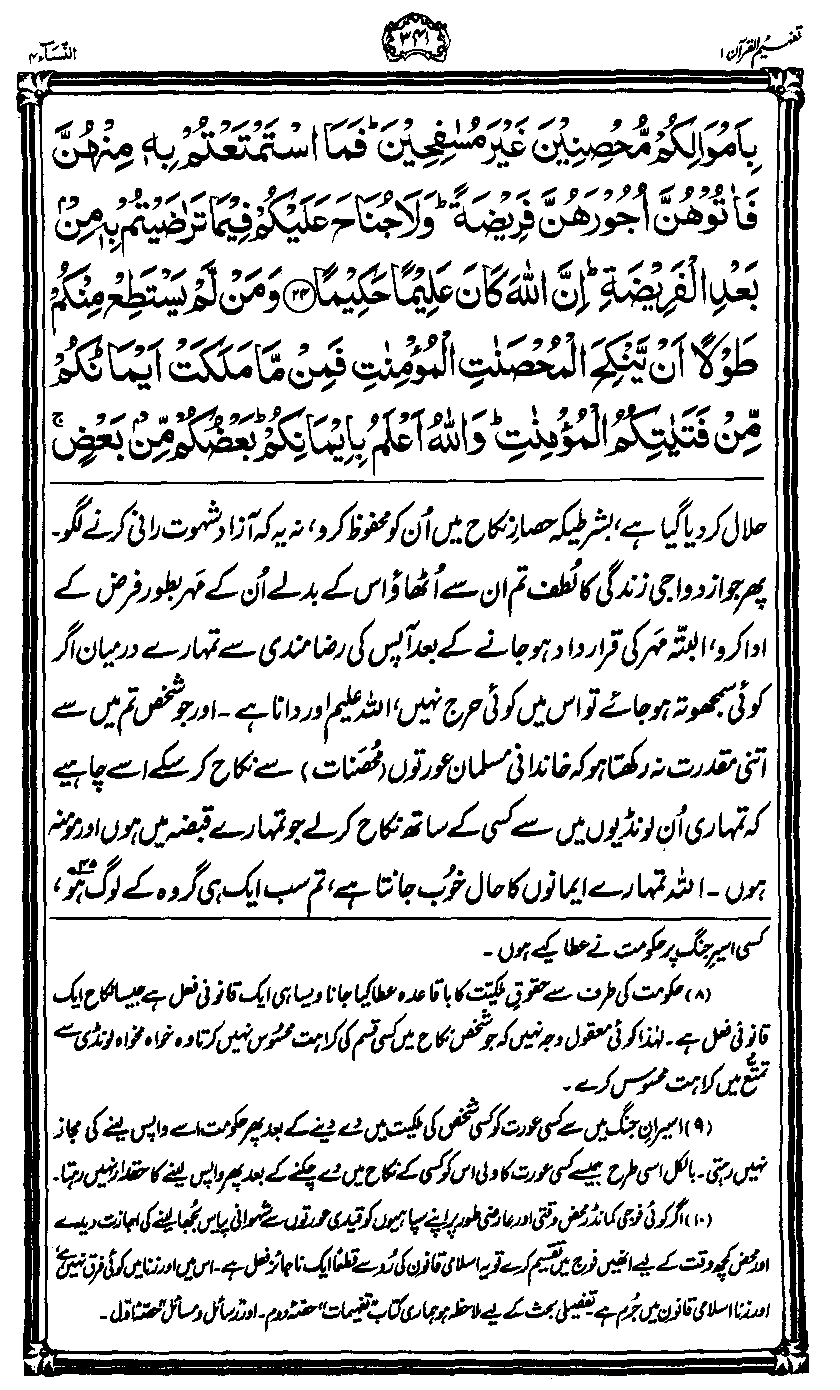 تفہیم القرآن ۱
۳۴۱
النسآء ۴
بِاَمْوَالِكُمْ مُّحْصِنِيْنَ غَيْرَ مُسٰفِحِيْنَ ؕ فَمَا اسْتَمْتَعْتُمْ بِهٖ مِنْهُنَّ
فَاٰتُوْهُنَّ اُجُوْرَهُنَّ فَرِيْضَةً ؕ وَلَا جُنَاحَ عَلَيْكُمْ فِيْمَا تَرٰضَيْتُمْ بِهٖ مِنْۢ
بَعْدِ الْفَرِيْضَةِ ؕ اِنَّ اللّٰهَ كَانَ عَلِيْمًا حَكِيْمًا ﴿۲۴﴾ وَمَنْ لَّمْ يَسْتَطِعْ مِنْكُمْ
طَوْلًا اَنْ يَّنْكِحَ الْمُحْصَنٰتِ الْمُؤْمِنٰتِ فَمِنْ مَّا مَلَكَتْ اَيْمَانُكُمْ
مِّنْ فَتَيٰتِكُمُ الْمُؤْمِنٰتِ ؕ وَاللّٰهُ اَعْلَمُ بِاِيْمَانِكُمْ ؕ بَعْضُكُمْ مِّنْۢ بَعْضٍ ۚ
حلال کر دیا گیا ہے، بشرطیکہ حصارِ نکاح میں اُن کو محفوظ کرو، نہ یہ کہ آزاد شہوت رانی کرنے لگو۔
پھر جو ازدواجی زندگی کا لُطف تم ان سے اُٹھاؤ اس کے بدلے اُن کے مَہر بطور فرض کے
ادا کرو، البتّہ مَہر کی قرارداد ہو جانے کے بعد آپس کی رضامندی سے تمہارے درمیان اگر
کوئی سمجھوتہ ہو جائے تو اس میں کوئی حرج نہیں، اللہ علیم اور دانا ہے۔ اور جو شخص تم میں سے
اتنی مقدرت نہ رکھتا ہو کہ خاندانی مسلمان عورتوں (مُحصَنات) سے نکاح کر سکے اسے چاہیے
کہ تمہاری اُن لونڈیوں میں سے کسی کے ساتھ نکاح کر لے جو تمہارے قبضہ میں ہوں اور مومنہ
ہوں۔ اللہ تمہارے ایمانوں کا حال خُوب جانتا ہے، تم سب ایک ہی گروہ کے لوگ ہو،۴۵
کسی اسیرِ جنگ پر حکومت نے عطا کیے ہوں۔
(۸) حکومت کی طرف سے حقوقِ ملکیّت کا باقاعدہ عطا کیا جانا ویسا ہی ایک قانونی فعل ہے جیسا نکاح ایک
قانونی فعل ہے۔ لہٰذا کوئی معقول وجہ نہیں کہ جو شخص نکاح میں کسی قسم کی کراہت محسُوس نہیں کرتا وہ خواہ مخواہ لونڈی سے
تمتّع میں کراہت محسوس کرے۔
(۹) اسیرانِ جنگ میں سے کسی عورت کو کسی شخص کی ملکیت میں دے دینے کے بعد پھر حکومت اسے واپس لینے کی مجاز
نہیں رہتی۔ بالکل اسی طرح جیسے کسی عورت کا ولی اس کو کسی کے نکاح میں دے چکنے کے بعد پھر واپس لینے کا حقدار نہیں رہتا۔
(۱۰) اگر کوئی فوجی کمانڈر محض وقتی اور عارضی طور پر اپنے سپاہیوں کو قیدی عورتوں سے شہوانی پیاس بُجھا لینے کی اجازت دیدے
اور محض کچھ وقت کے لیے انھیں فوج میں تقسیم کرے تو یہ اسلامی قانون کی رُو سے قطعًا ایک ناجائز فعل ہے۔ اس میں اور زنا میں کوئی فرق نہیں ہے
اور زنا اسلامی قانون میں جُرم ہے تفصیلی بحث کے لیے ملاحظہ ہو ہماری کتاب "تفہیمات" حصّہ دوم۔ اور "رسائل و مسائل" حصّہ اوّل۔